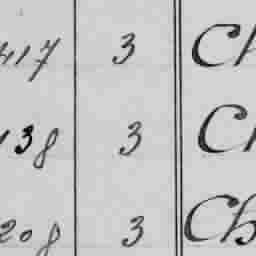 417 3 Ch
138 3 Ch
208 3 Ch